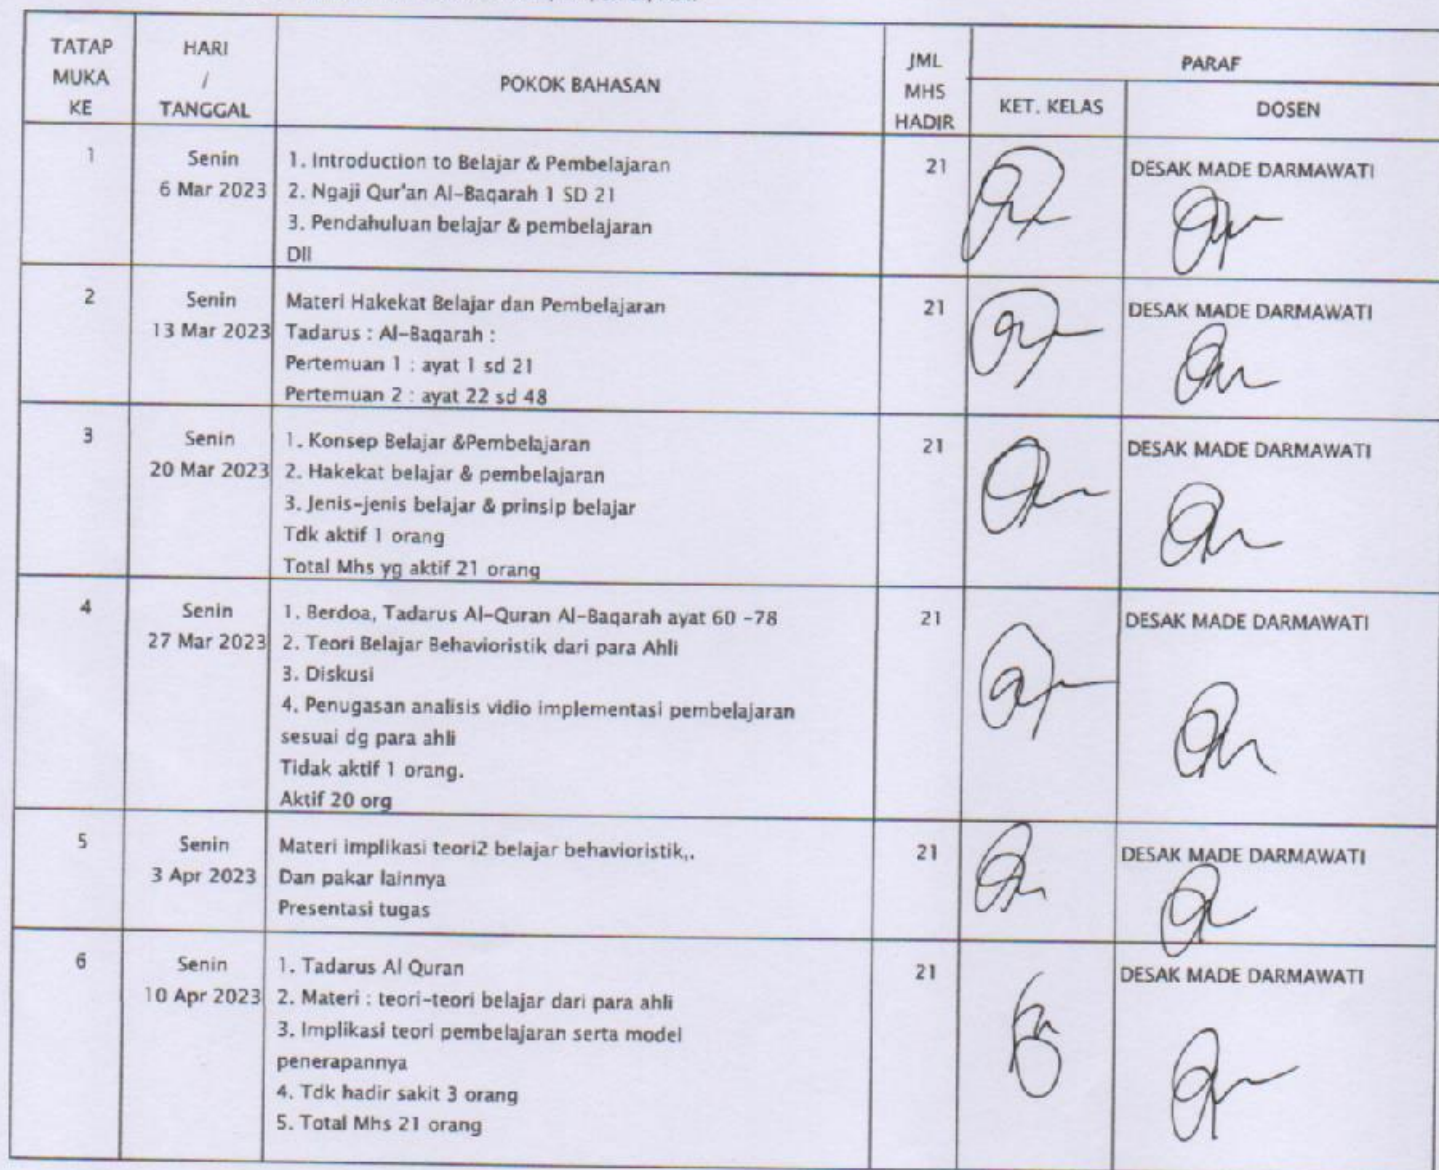 TATAP MUKA KE
HARI / TANGGAL
POKOK BAHASAN
JML MHS HADIR
PARAF
KET. KELAS
DOSEN
1
Senin
6 Mar 2023
1. Introduction to Belajar & Pembelajaran
2. Ngaji Qur'an Al-Baqarah 1 SD 21
3. Pendahuluan belajar & pembelajaran
Dll
21
DESAK MADE DARMAWATI
2
Senin
13 Mar 2023
Materi Hakekat Belajar dan Pembelajaran
Tadarus : Al-Baqarah :
Pertemuan 1 : ayat 1 sd 21
Pertemuan 2 : ayat 22 sd 48
21
DESAK MADE DARMAWATI
3
Senin
20 Mar 2023
1. Konsep Belajar &Pembelajaran
2. Hakekat belajar & pembelajaran
3. Jenis-jenis belajar & prinsip belajar
Tdk aktif 1 orang
Total Mhs yg aktif 21 orang
21
DESAK MADE DARMAWATI
4
Senin
27 Mar 2023
1. Berdoa, Tadarus Al-Quran Al-Baqarah ayat 60 -78
2. Teori Belajar Behavioristik dari para Ahli
3. Diskusi
4. Penugasan analisis vidio implementasi pembelajaran
sesuai dg para ahli
Tidak aktif 1 orang.
Aktif 20 org
21
DESAK MADE DARMAWATI
5
Senin
3 Apr 2023
Materi implikasi teori2 belajar behavioristik,.
Dan pakar lainnya
Presentasi tugas
21
DESAK MADE DARMAWATI
6
Senin
10 Apr 2023
1. Tadarus Al Quran
2. Materi : teori-teori belajar dari para ahli
3. Implikasi teori pembelajaran serta model
penerapannya
4. Tdk hadir sakit 3 orang
5. Total Mhs 21 orang
21
DESAK MADE DARMAWATI